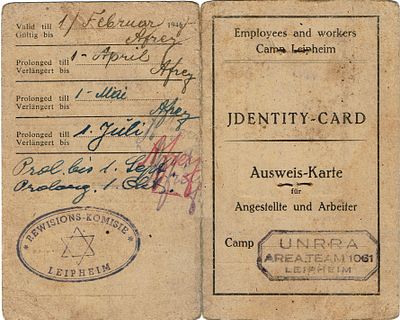 Valid till
Gültig bis
1/Februar 1946
Afrez
Prolonged till
Verlängert bis
1 - April
Afrez
Prolonged till
Verlängert bis
1 - Mai
Afrez
Prolonged till
Verlängert bis
1. Juli
Prol. bis 1. Sept.
Prolong. 1.
REWISIONS-KOMISIE
LEIPHEIM
Employees and workers
Camp Leipheim
JDENTITY-CARD
Ausweis-Karte
für
Angestellte und Arbeiter
Camp
UNRRA
AREA TEAM 1061
LEIPHEIM